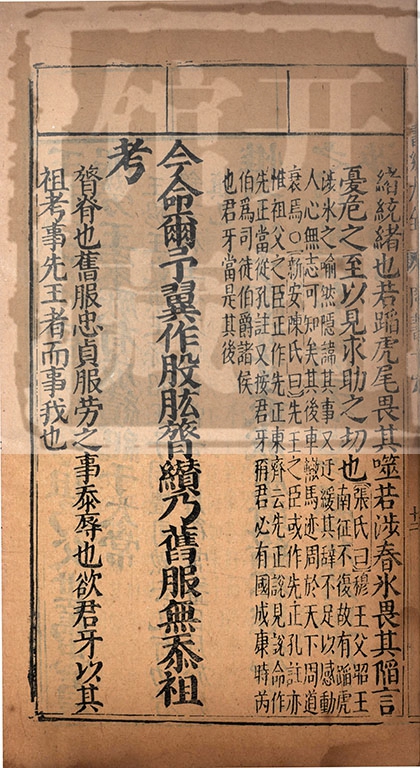 緒統緒也若蹈虎尾畏其噬若涉春氷畏其陷言
憂危之至以見求助之切也
張氏曰穆王父昭王
南征不復故有蹈虎
涉氷之喻然隱諱其事又迂緩其辭不足以感動
人心無志可知矣其後車轍馬迹周於天下周道
衰焉○新安陳氏曰先王之臣或作先正孔註亦
惟祖父之臣正作先正東齊云先正說見說命作
先正當從孔註又按君牙稱君必有國成康時芮
伯為司徒伯爵諸侯
也君牙當是其後
今命爾予翼作股肱膂纘乃舊服無忝祖
考
膂脊也舊服忠貞服勞之事忝辱也欲君牙以其
祖考事先王者而事我也